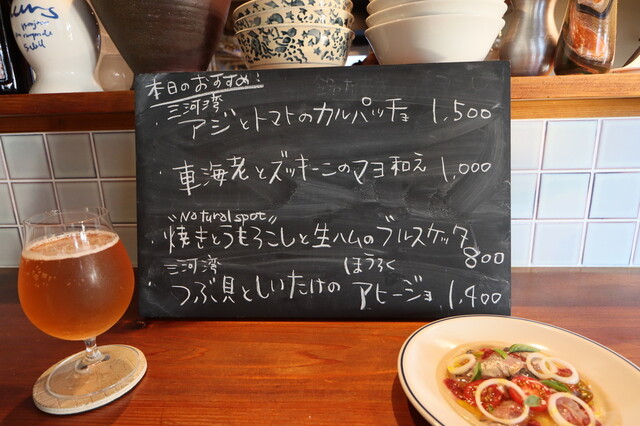 本日のおすすめ!
三河湾
・アジとトマトのカルパッチョ 1,500
・車海老とズッキーニのマヨ和え 1,000
"Natural spot"
・焼きとうもろこしと生ハムのブルスケッタ
800
三河湾 ほうろく
・つぶ貝としいたけの アヒージョ 1,400